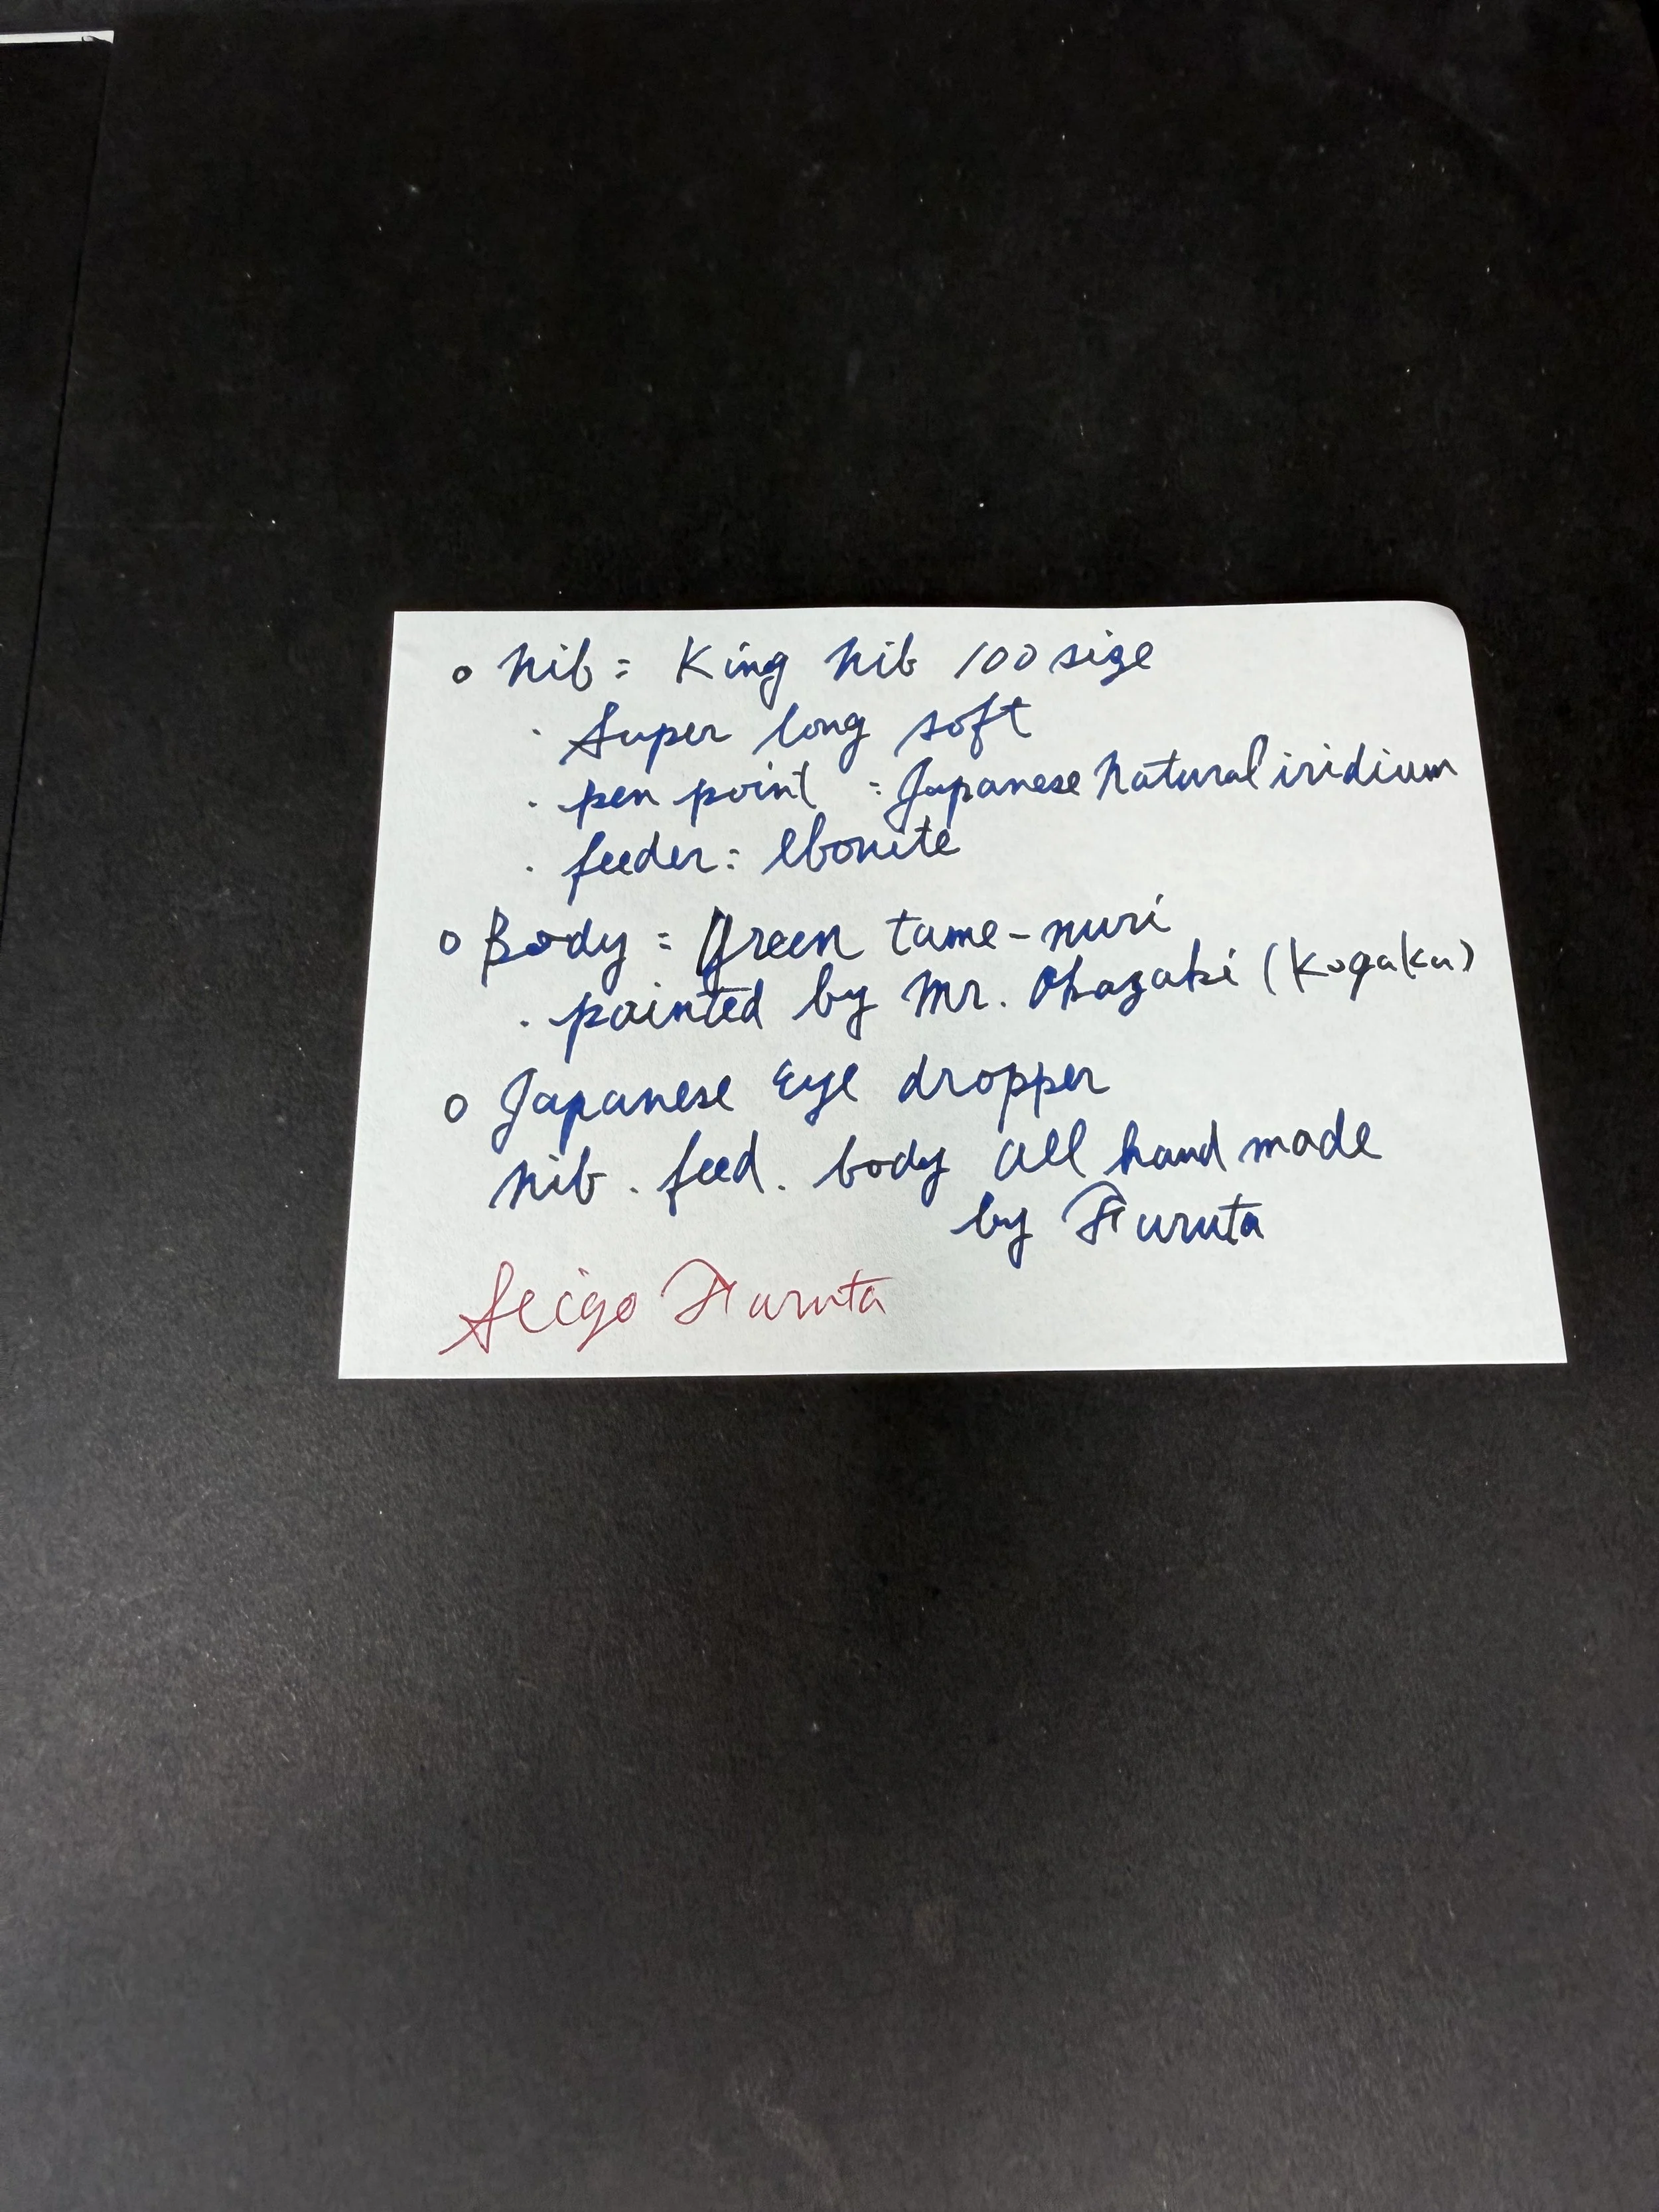 ○ nib = King nib 100 size
· Super long soft
· pen point = Japanese natural iridium
· feeder = ebonite
○ Body = Green tame-nuri
· painted by Mr. Okazaki (Kogaku)
○ Japanese Eye dropper
nib . feed . body all hand made
by Furuta
Seigo Furuta